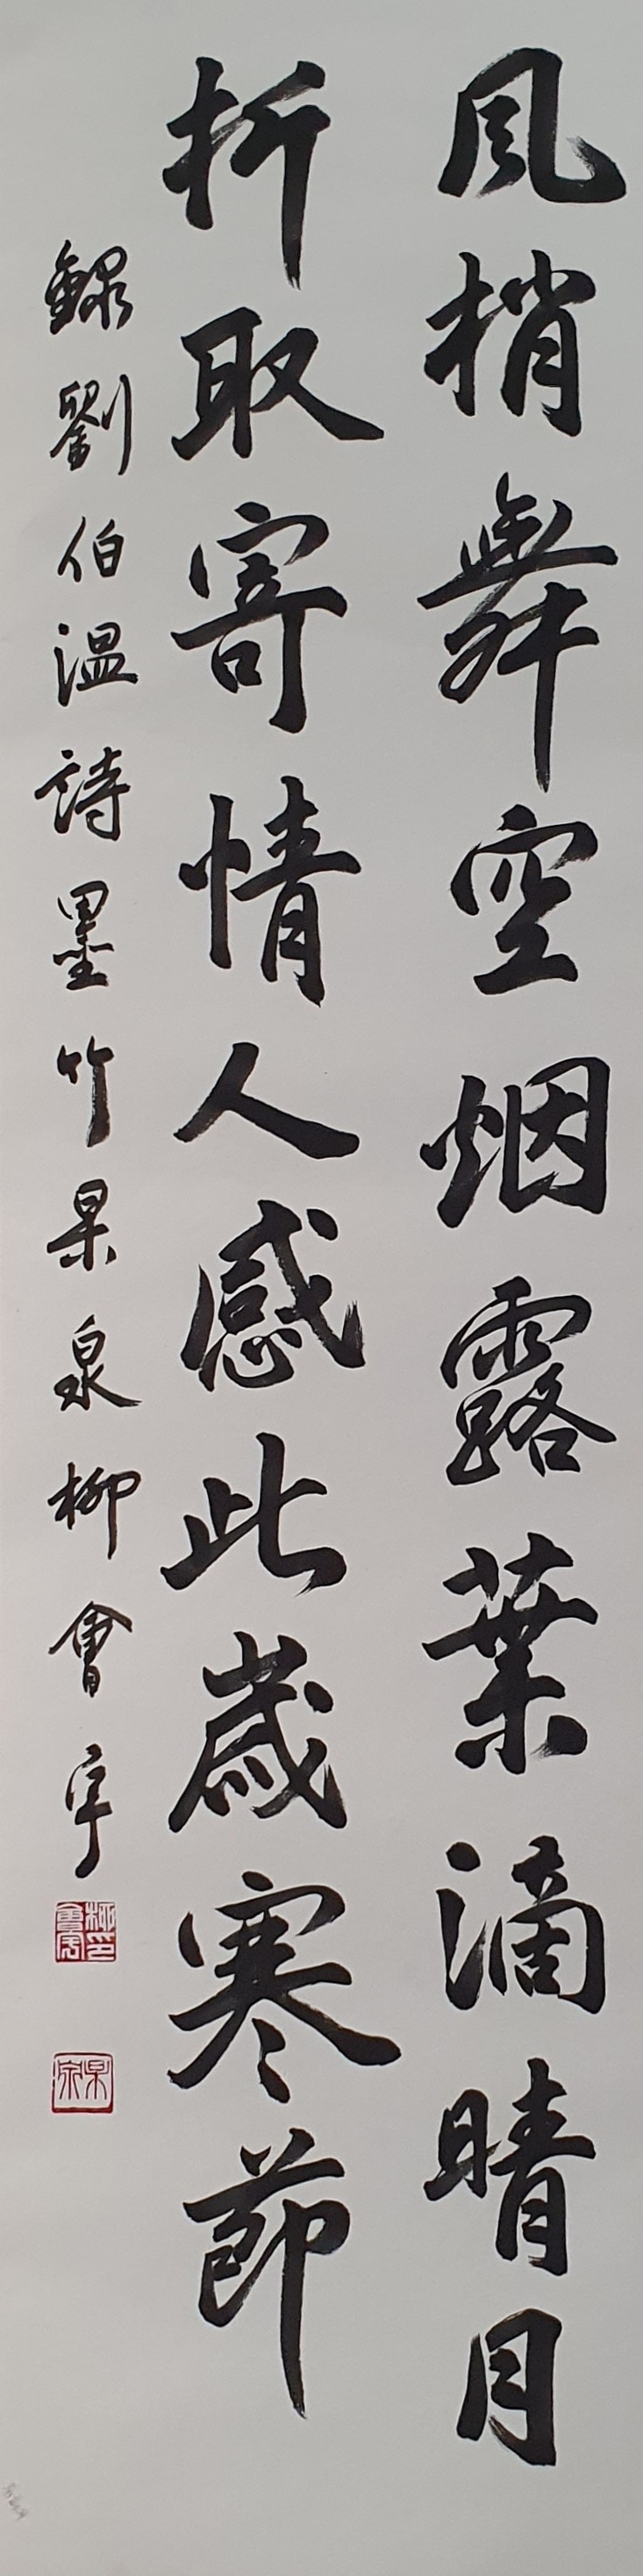 風梢舞空烟露葉滴晴月
折取寄情人感此歲寒節
錄劉伯温詩墨竹杲泉柳會宇